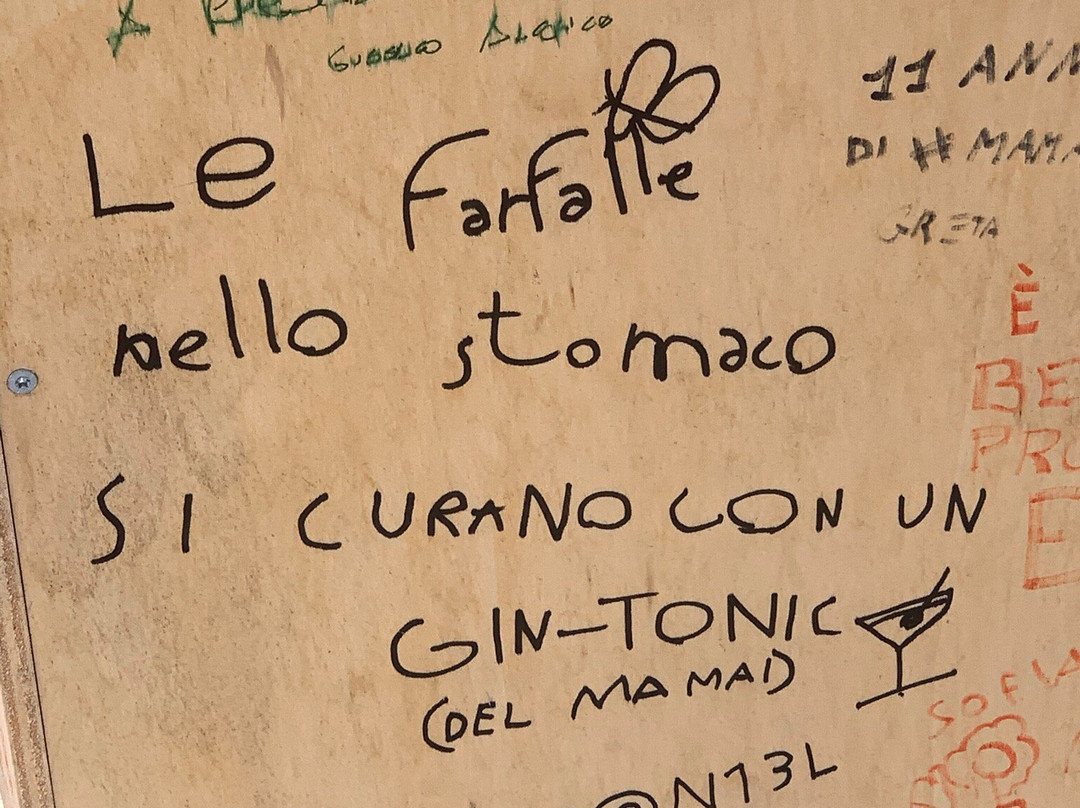 Le farfalle
nello stomaco
SI CURANO CON UN
GIN-TONIC
(DEL MAMAI)
@N13L
11 ANN
DI # MAMA
GRETA
È
BE
PRO
E
SOFIA